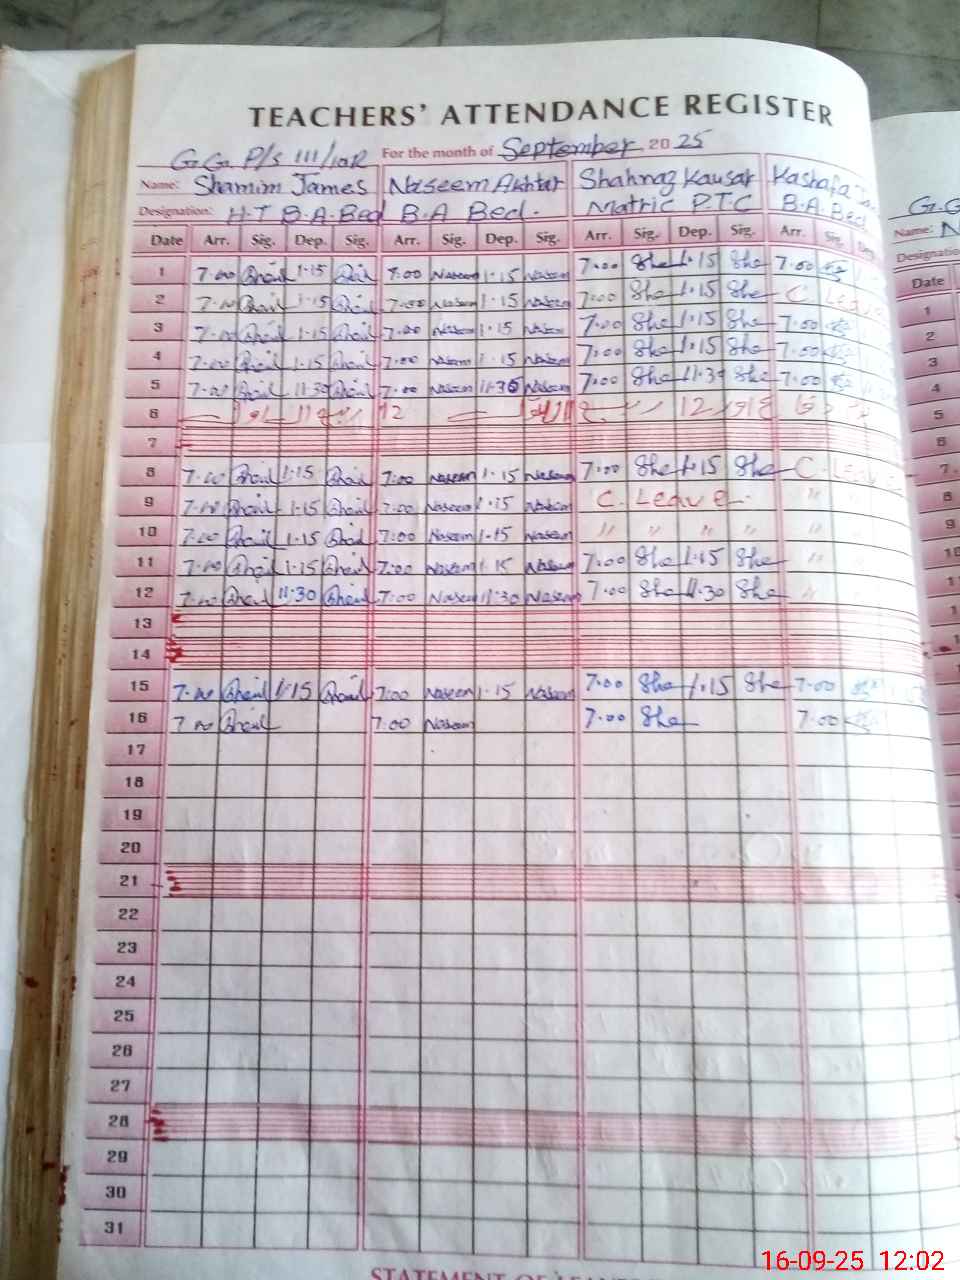 TEACHERS' ATTENDANCE REGISTER
G.G. P/S 111/10R For the month of September 2025
Name: Shamim James Naseem Akhtar Shahnaz Kausar Kashafa
Designation: H.T B.A. Bed B.A Bed. Matric P.T.C B.A. Bed
Date Arr. Sig. Dep. Sig. Arr. Sig. Dep. Sig. Arr. Sig. Dep. Sig. Arr. Sig. Dep.
1 7.00 1.15 7.00 Naseem 1.15 Naseem 7:00 She 1.15 She 7.00
2 7.00 1.15 7.00 Naseem 1.15 Naseem 7:00 She 1.15 She C. Leave
3 7.00 1.15 7.00 Naseem 1.15 Naseem 7:00 She 1.15 She 7.00
4 7.00 1.15 7.00 Naseem 1.15 Naseem 7:00 She 1.15 She 7.00
5 7.00 11.30 7.00 Naseem 11.30 Naseem 7:00 She 11.30 She 7.00
6 12 ربیع الاول 12 ربیع الاول
7
8 7.00 1.15 7:00 Naseem 1.15 Naseem 7:00 She 1.15 She C. Leave
9 7.00 1.15 7:00 Naseem 1.15 Naseem C. Leave "
10 7.00 1.15 7:00 Naseem 1.15 Naseem " " " " "
11 7.00 1.15 7:00 Naseem 1.15 Naseem 7:00 She 1.15 She "
12 7.00 11:30 7:00 Naseem 11:30 Naseem 7:00 She 11.30 She "
13
14
15 7.00 1.15 7:00 Naseem 1.15 Naseem 7.00 She 1.15 She 7.00
16 7.00 7.00 Naseem 7.00 She 7.00
17
18
19
20
21
22
23
24
25
26
27
28
29
30
31
Name:
Designation
Date
1
2
3
4
5
6
7
8
9
10
16-09-25 12:02